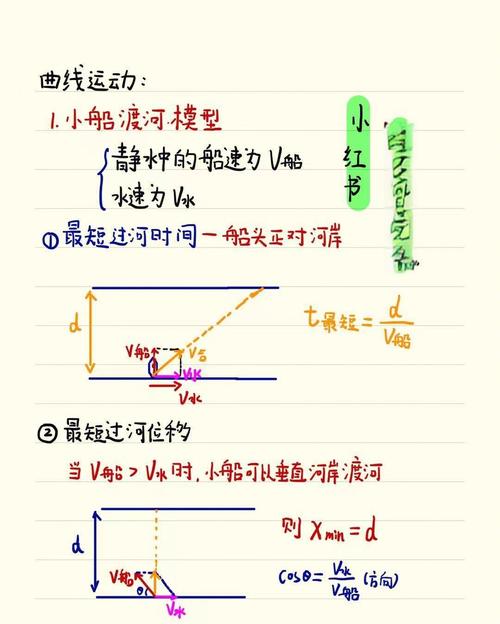 曲线运动:
1.小船渡河.模型
静水中的船速为V船
水速为V水
小红书
①最短过河时间—船头正对河岸
d
V船
V合
V水
V水
t最短=d/V船
②最短过河位移
当V船>V水时,小船可以垂直河岸渡河
d
V船
θ
V水
则Xmin=d
cosθ=V水/V船(方向)